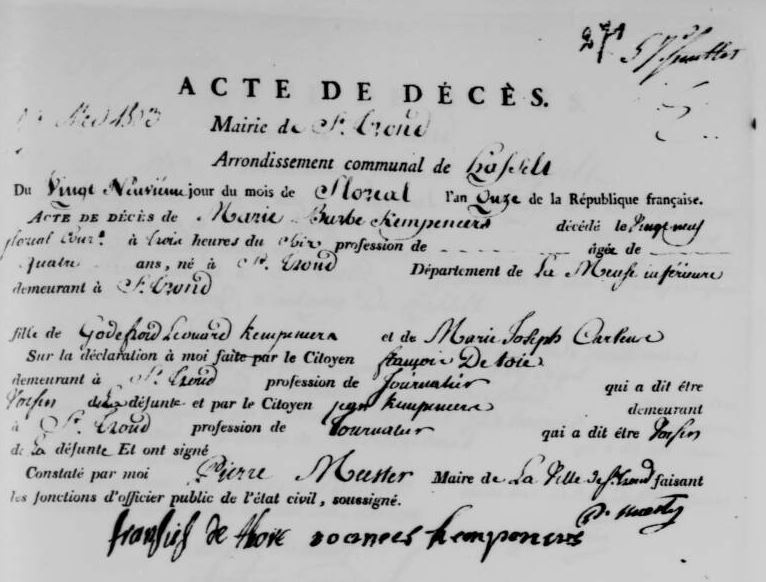 274
ACTE DE DÉCÈS.
Mairie de St. Trond
Arrondissement communal de hasselt
Du Vingt Neuvieme jour du mois de floreal l'an Onze de la République française.
ACTE DE DÉCÈS de Marie Barbe Kempeneers décédé le Vingt neuf
floreal cour.t à trois heures du soir profession de âgée de
quatre ans, né à St. Trond Département de La Meuse inférieure
demeurant à St. Trond
fille de Godefroid Leonard Kempeneers et de Marie Joseph
Sur la déclaration à moi faite par le Citoyen françois
demeurant à St. Trond profession de Journalier qui a dit être
Voisin de La défunte et par le Citoyen jean Kempeneers demeurant
à St. Trond profession de Journalier qui a dit être Voisin
de La défunte Et ont signé
Constaté par moi Pierre Maire de La Ville de St. trond faisant
les fonctions d'officier public de l'état civil, soussigné.
de Kempeneers